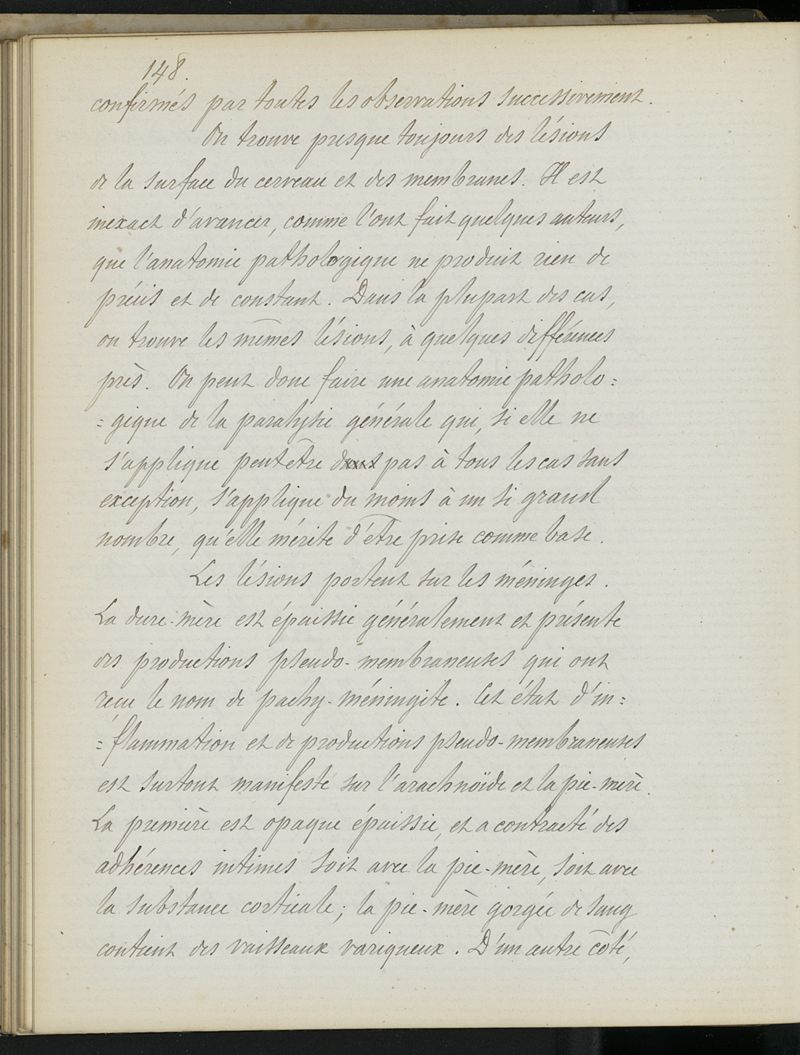 148.
confirmés par toutes les observations successivement.
On trouve presque toujours des lésions
de la surface du cerveau et des membranes. Il est
inexact d'avancer, comme l'ont fait quelques auteurs,
que l'anatomie pathologique ne produit rien de
précis et de constant. Dans la plupart des cas,
on trouve les mêmes lésions, à quelques différences
près. On peut donc faire une anatomie patholo=
=gique de la paralysie générale qui, si elle ne
s'applique peut être pas à tous les cas sans
exception, s'applique du moins à un si grand
nombre, qu'elle mérite d'être prise comme base.
Les lésions portent sur les méninges.
La dure-mère est épaissie généralement et présente
des productions pseudo-membraneuses qui ont
reçu le nom de pachy-méningite. Cet état d'in=
=flammation et de productions pseudo-membraneuses
est surtout manifeste sur l'arachnoïde et la pie-mère.
La première est opaque épaissie, et a contracté des
adhérences intimes soit avec la pie-mère, soit avec
la substance corticale; la pie-mère gorgée de sang
contient des vaisseaux variqueux. D'un autre côté,